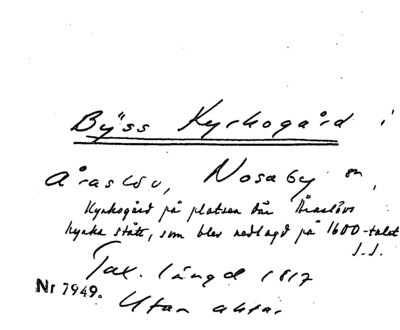 Byss Kyrkogård i
Åraslöv, Nosaby sn,
Kyrkogård på platsen där Åraslövs
kyrka stått, som blev nedlagd på 1600-talet
S.S.
Tax. längd 1817
Nr 7949.
Utan aktar.